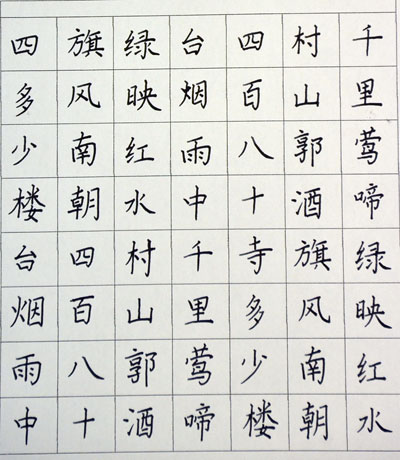 千里莺啼绿映红水
村山郭酒旗风南朝
四百八十寺多少楼
台烟雨中千里莺啼
绿映红水村山郭酒
旗风南朝四百八十
四多少楼台烟雨中